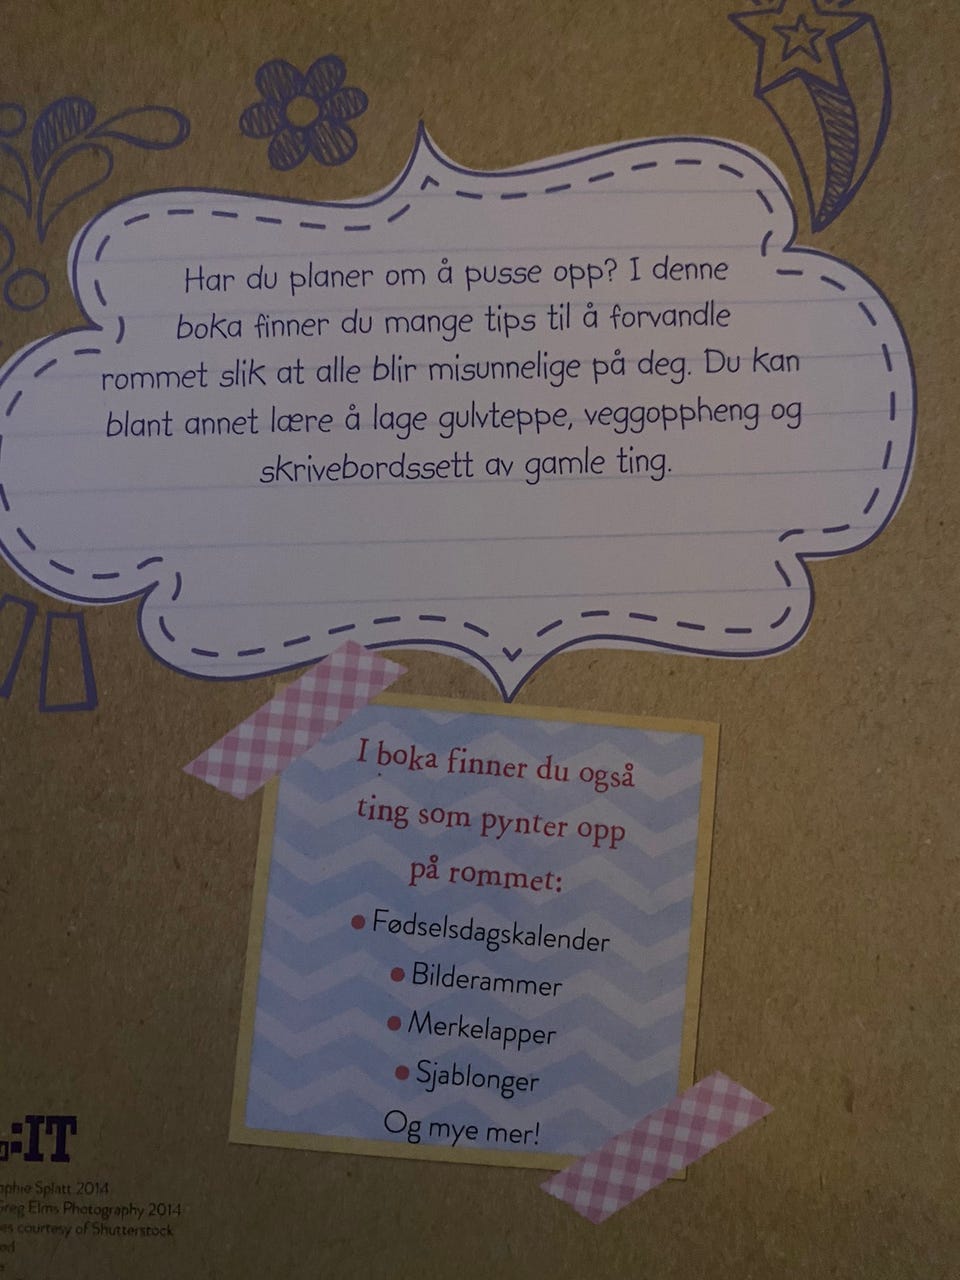 Har du planer om å pusse opp? I denne
boka finner du mange tips til å forvandle
rommet slik at alle blir misunnelige på deg. Du kan
blant annet lære å lage gulvteppe, veggoppheng og
skrivebordssett av gamle ting.
I boka finner du også
ting som pynter opp
på rommet:
• Fødselsdagskalender
• Bilderammer
• Merkelapper
• Sjablonger
Og mye mer!
:IT
Splatt 2014
Greg Elms Photography 2014
courtesy of Shutterstock